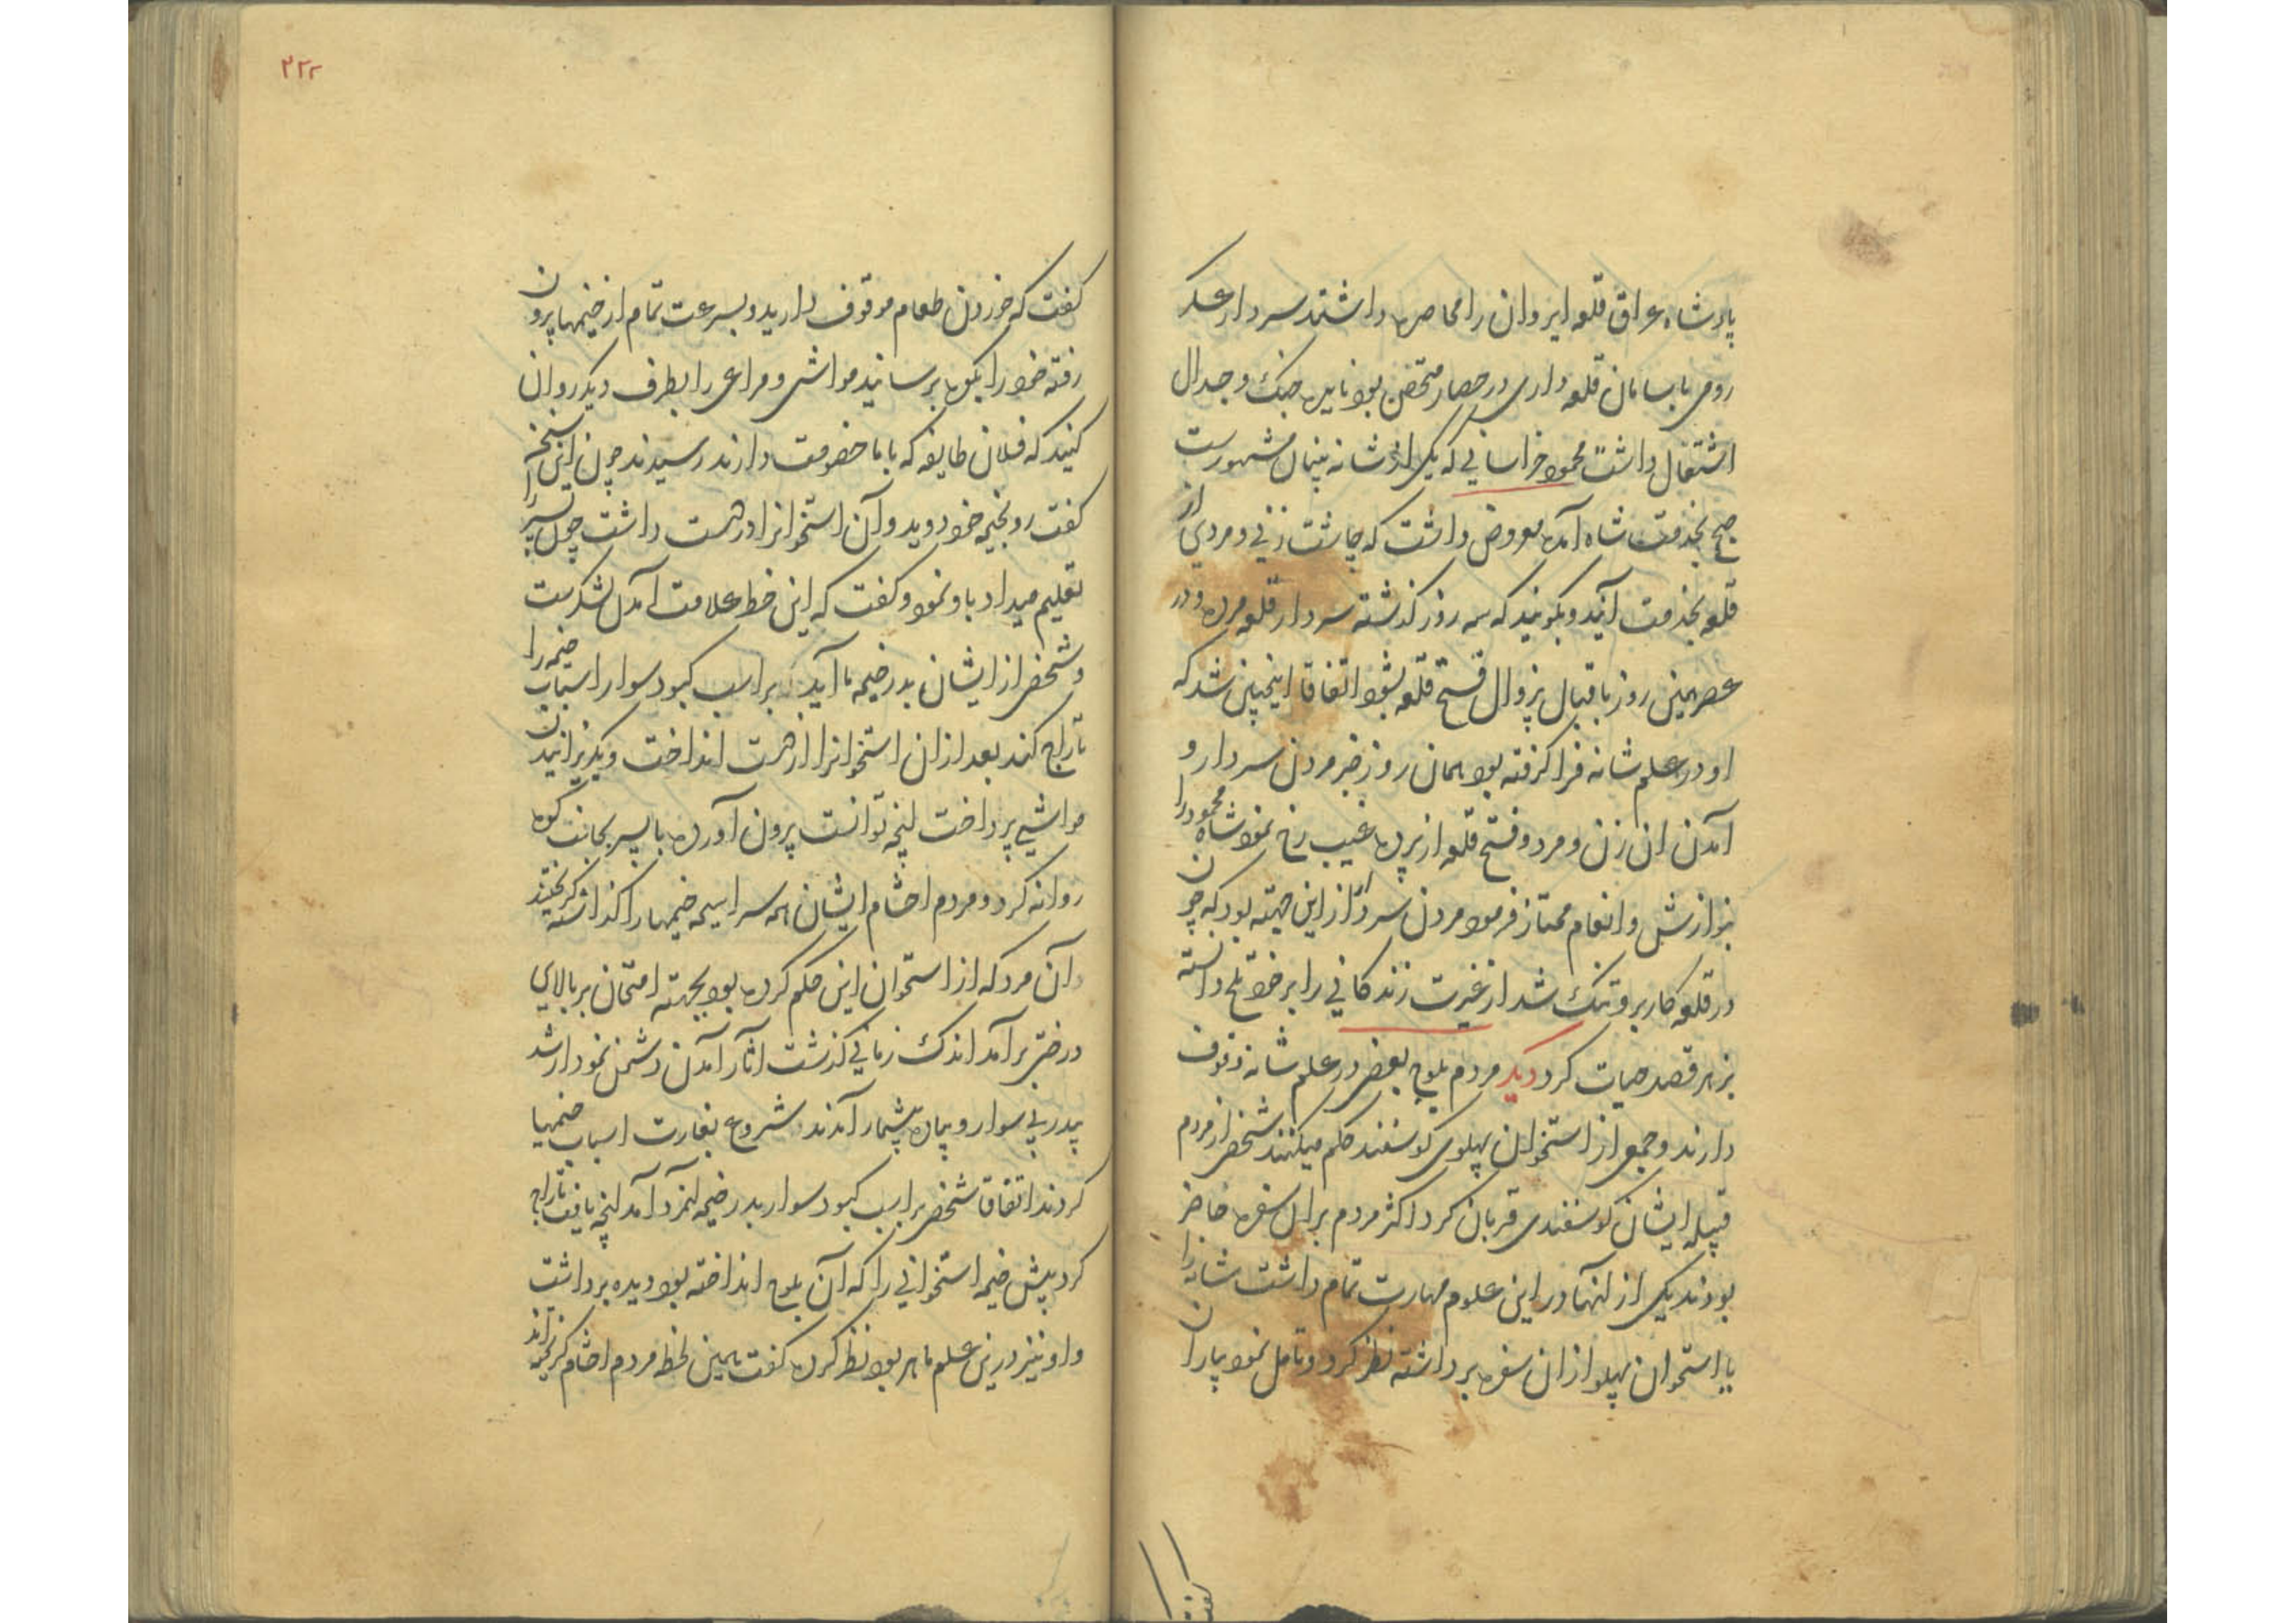 پادشاه عراق قلعه ایروان را محاصره داشتند سردار عسکر
رومی با سامان قلعه داری در حصار متحصن بود نایره جنک و جدال
اشتغال داشت محمود خراسانی که یکی از شانه بینان مشهورست
صبح بخدمت شاه آمده معروض داشت که چاشت زنی و مردی از
قلعه بخدمت آیند و بکویند که سه روز کذشته سردار قلعه مرده و در
عصر همین روز باقبال بزوال فتح قلعه بشود اتفاقا اینچنین شد که
او در علم شانه فرا کرفته بود همان روز خبر مردن سردار و
آمدن ان زن و مرد و فتح قلعه از پرده غیب رخ نمود شاه محمود را
بنوازش و انعام ممتاز فرمود مردن سردار از این جهته بود که چون
در قلعه کار برو تنک شد از غیرت زندکانی را بر خود تلخ دانسته
بزهر قصد حیات کرد دیکر مردم بلوچ بعضی در علم شانه وقوف
دارند و جمعی از استخوان پهلوی کوسفند حکم میکنند شخصی از مردم
قبیله ایشان کوسفندی قربان کرد اکثر مردم بران سفره حاضر
بودند یکی از آنها در این علوم مهارت تمام داشت شانه را
یا استخوان پهلو از ان سفره برداشته نظر کرد و تامل نمود بیاران
کفت
۲۲۲
کفت که خوردن طعام موقوف دارید و بسرعت تمام از خیمها بیرون
رفته خود را بکوه برسانید مواشی و مراعی را بطرف دیکر روان
کنید که فلان طایفه که با ما خصومت دارند رسیدند چون این سخن
کفت رو بخیمه خود دوید و آن استخوانرا در دست داشت چون پسر را
تعلیم میداد باو نمود و کفت که این خط علامت آمدن لشکرست
و شخصی از ایشان بدر خیمه ما آید بر اسب کبود سوار اسباب خیمه را
تاراج کند بعد ازان استخوانرا از دست انداخت و بکریزانیدن
مواشی پرداخت آنچه توانست بیرون آورده با پسر بجانب کوه
روانه کرد و مردم احشام ایشان همه سراسیمه خیمها را کذاشته کریختند
آن مرد که از استخوان این حکم کرده بود بجهته امتحان بر بالای
درختی برآمد اندک زمانی کذشت اثار آمدن دشمن نمودار شد
پی در پی سوار و پیاده بیشمار آمدند شروع بغارت اسباب خیمها
کردند اتفاقا شخصی بر اسب کبود سوار بدر خیمه آنمرد آمد آنچه یافت تاراج
کرد پیش خیمه استخوانی را که آن بلوچ انداخته بود دیده برداشت
و او نیز درین علم ماهر بود نظر کرده کفت همین لحظه مردم احشام کریخته اند